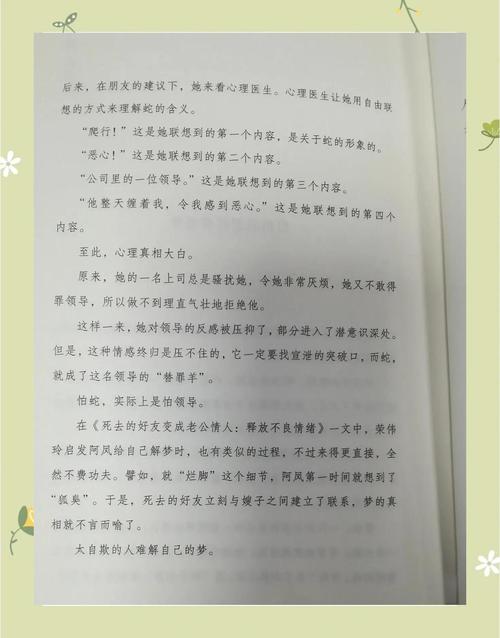 后来，在朋友的建议下，她来看心理医生。心理医生让她用自由联
想的方式来理解蛇的含义。
“爬行！”这是她联想到的第一个内容，是关于蛇的形象的。
“恶心！”这是她联想到的第二个内容。
“公司里的一位领导。”这是她联想到的第三个内容。
“他整天缠着我，令我感到恶心。”这是她联想到的第四个
内容。
至此，心理真相大白。
原来，她的一名上司总是骚扰她，令她非常厌烦，她又不敢得
罪领导，所以做不到理直气壮地拒绝他。
这样一来，她对领导的反感被压抑了，部分进入了潜意识深处。
但是，这种情感终归是压不住的，它一定要找宣泄的突破口，而蛇，
就成了这名领导的“替罪羊”。
怕蛇，实际上是怕领导。
在《死去的好友变成老公情人：释放不良情绪》一文中，荣伟
玲启发阿凤给自己解梦时，也有类似的过程，不过来得更直接，全
然不费功夫。譬如，就“烂脚”这个细节，阿凤第一时间就想到了
“狐臭”。于是，死去的好友立刻与嫂子之间建立了联系，梦的真
相就不言而喻了。
太自欺的人难解自己的梦。